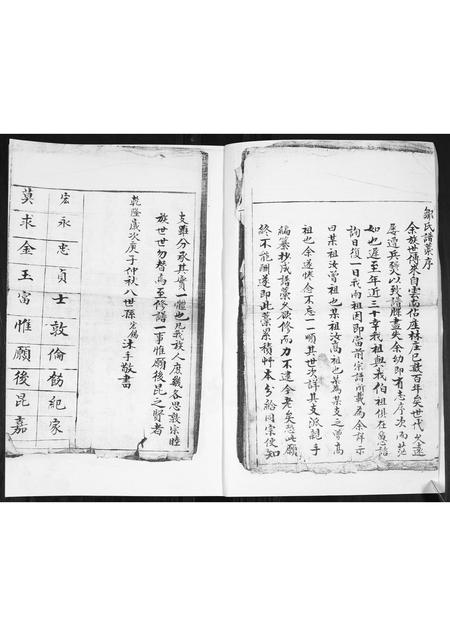 鄒氏譜藁序
余族世傳來自雲南佔座林庄已數百年矣世代久遠
屢遭兵燹以致譜牒盡失余幼即有志序次而茫
如也遲至年近三十幸我祖與我伯祖俱在寬語
詢日後一日我兩祖因即當前宗譜所載為余詳示
曰某祖汝曾祖也某祖汝高祖也某為某支之曾高
祖也余遂恢念不忘一順其世次詳其支派親手
編纂抄成譜藁久欲修而力不逮今老矣恐此願
終不能酬遂即此藁累積草本分給同宗使知
支雖分承其實一體也凡我族人庶幾各思敦宗睦
族世世勿替焉至修譜一事惟願後昆之賢者
乾隆歲次庚子仲秋八世孫宏錫沐手敬書
宏永忠貞士敦倫飭紀家
莫求金玉富惟願後昆嘉